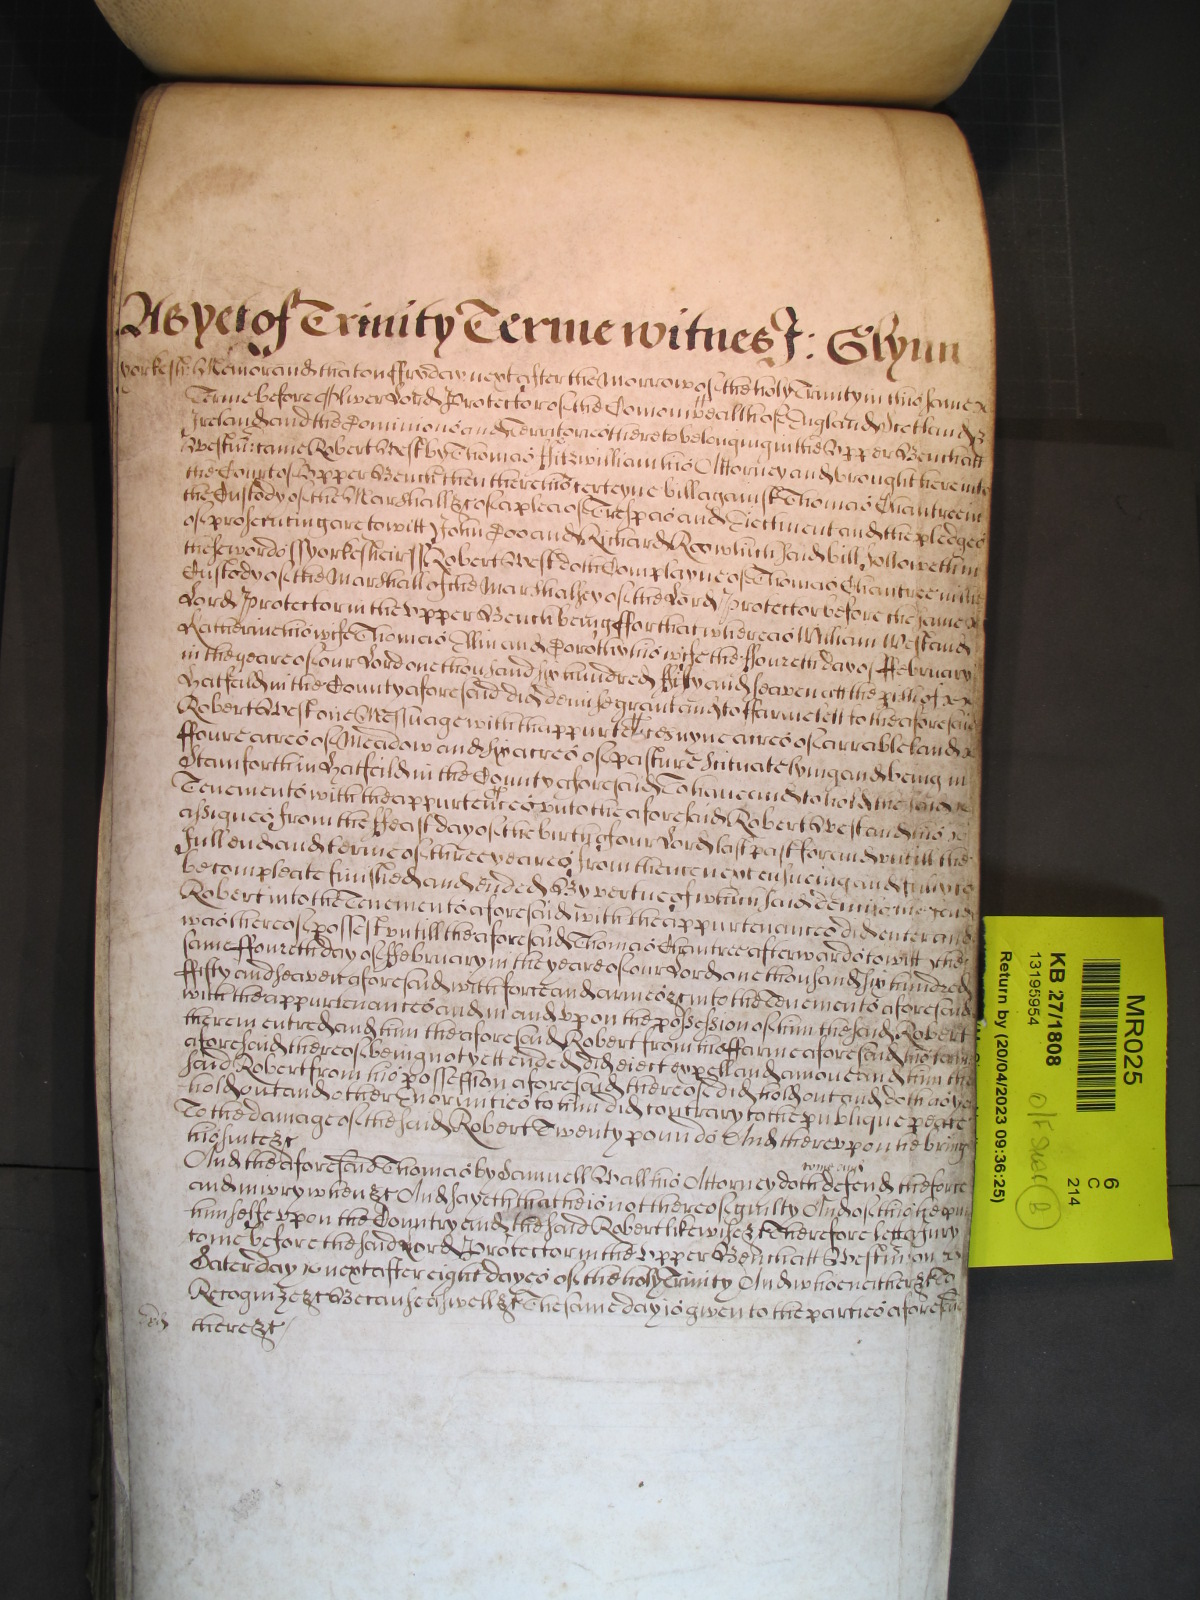 As yet of Trinity Terme witnes J: Glynn
Yorkesh: Memorand that on ffryday next after the Morrow of the holy Trinity in this same
Terme before Oliver Lord Protector of the Comonwealth of England Scotland &
Ireland and the Dominions and Territories thereto belonging in the Upper Bench att
Westm came Robert West by Thomas Fitzwilliam his Attorney and brought here into
the Court of Upper Bench then there his certeyne bill against Thomas Chantree in
the Custody of the Marshall &c of a plea of Trespas and Eiectment and the pledges
of prosecuting are to witt John Doo and Richard Roo which said bill followeth in
these words ss Yorkesheir ss Robert West doth Complayne of Thomas Chantree in the
Custody of the Marshall of the Marshalsey of the Lord Protector before the same
Lord Protector in the Upper Bench being ffor that whereas William West and
Katherine his wife Thomas Allin and Dorothy his wife the ffoureth day of ffebruary
in the yeare of our Lord one thousand six hundred ffifty and seaven att the pish of
Hatfeild in the County aforesaid did demise grant and to ffarme lett to the aforesaid
Robert West one Messuage with thappurtences nyne acres of arrable land
ffoure acres of Meadow and six acres of pasture Scituate lying and being in
Stainforth in Hatfeild in the County aforesaid To have and to hold the said
Tenements with the appurtences unto the aforesaid Robert West and his
assignes from the ffeast day of the birth of our Lord last past for and untill the
full end and terme of three yeares from thence next ensueing and fully to
be compleate finished and ended By vertue of which said demise the said
Robert into the Tenements aforesaid with the appurtenances did enter and
was thereof possest untill the aforesaid Thomas Chantree afterwards to witt the
same ffoureth day of ffebruary in the yeare of our Lord one thousand six hundred
ffifty and seaven aforesaid with force and armes &c into the Tenements aforesaid
with the appurtenances and in and uppon the possession of him the said Robert
therein entred and him the aforesaid Robert from his ffarme aforesaid his terme
aforesaid thereof being not yett ended did eiect expell and amove and him the
said Robert from his possession aforesaid thereof did hold out and doth as yet
hold out and other Enormities to him did contrary to the publique peace
To the damage of the said Robert Twenty pounds And thereuppon he brings
his suite &c
And the aforesaid Thomas by Samuell Wall his Attorney doth come and defend the force
and iniury when &c And sayeth that he is not thereof guilty And of this he putts
himselfe uppon the Country and the said Robert likewise &c Therefore lett a Jury
come before the said Lord Protector in the Upper Bench att Westm on
Saterday next after eight dayes of the holy Trinity And who neither &c To
Recognize &c Because aswell &c The same day is given to the parties aforesaid
there &c
MR025
KB 27/1808
13195954
Return by (20/04/2023 09:36:25)
6
C
214
B